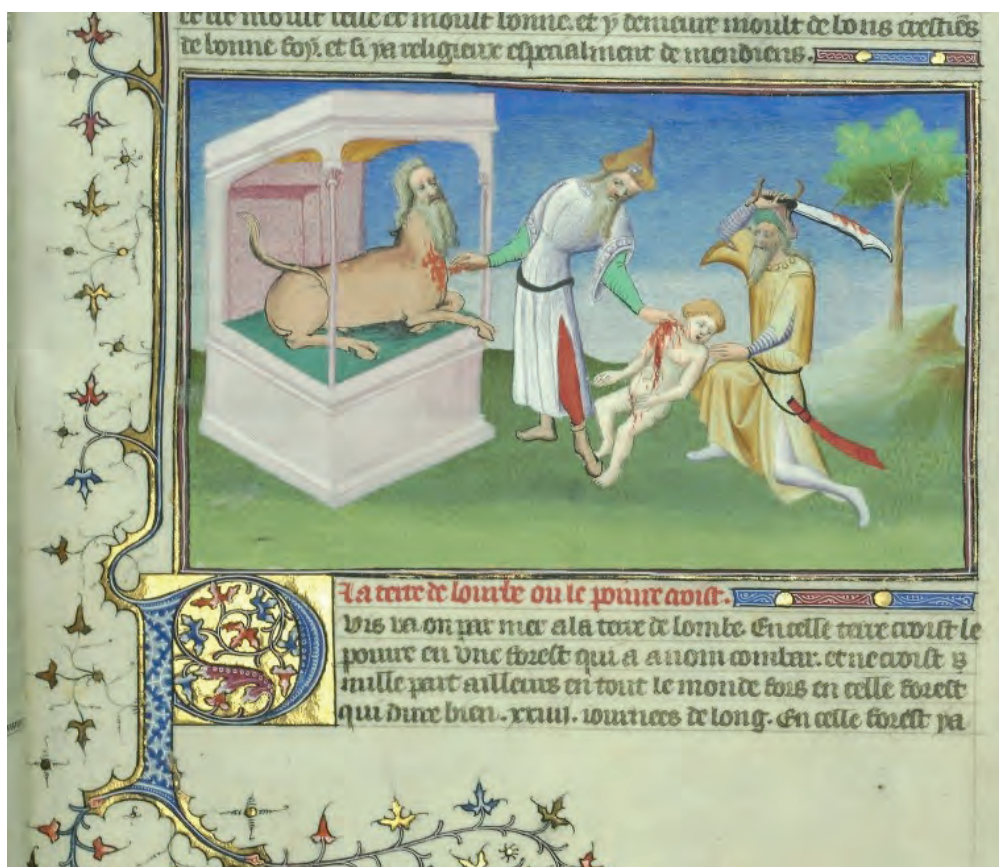 et y demeure moult de bons crestiẽs
de bonne foy. et si ya religieux especialment de mendiens.
La terre de lombe ou le poiure croist.
Puis va on par mer a la terre de lombe. En celle terre croist le
poiure en vne forest qui a a nom combar. et ne croist
nulle part ailleurs en tout le monde fors en celle forest
qui dure bien .xxiii. iournees de long. En celle forest ya